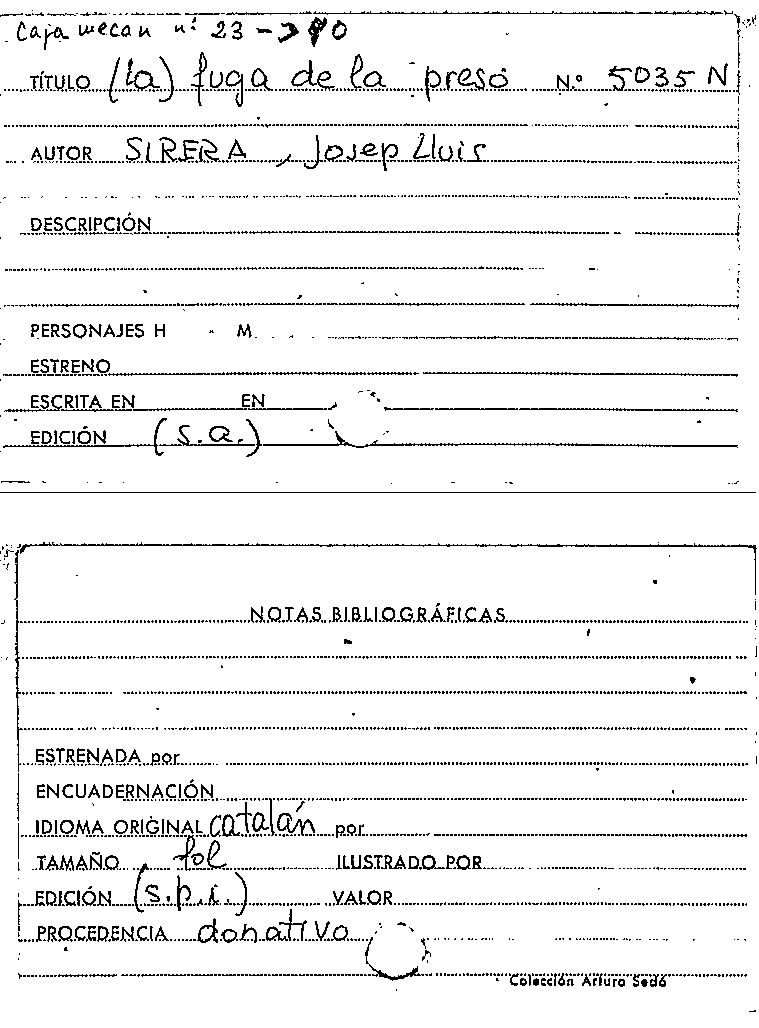 Caja mecan nº 23 -> 90
TÍTULO (La) fuga de la presó N.º 5035 N
AUTOR SIRERA, Josep Lluis
DESCRIPCIÓN
PERSONAJES H M.
ESTRENO
ESCRITA EN EN
EDICIÓN (s.a.)
NOTAS BIBLIOGRÁFICAS
ESTRENADA por
ENCUADERNACIÓN
IDIOMA ORIGINAL catalán por
TAMAÑO fol ILUSTRADO POR
EDICIÓN (s.p.i.) VALOR
PROCEDENCIA donativo
Colección Arturo Sedó